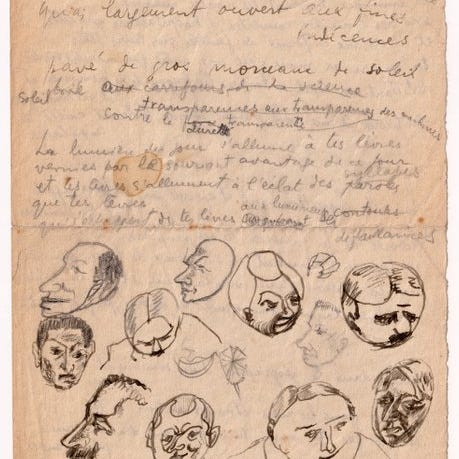 largement ouvert aux fines
indécences
pavé de gros morceaux de soleil
Soleil aux carrefours de la science
transparences aux transparences des machines
contre le transparents
La lumière du jour s'allume à tes lèvres
vernies par le souriant avantage de ce jour
syllabes
et tes lèvres s'allument à l'éclat des paroles
que tes lèvres
de tes lèvres aux lumineux contours
défaillances